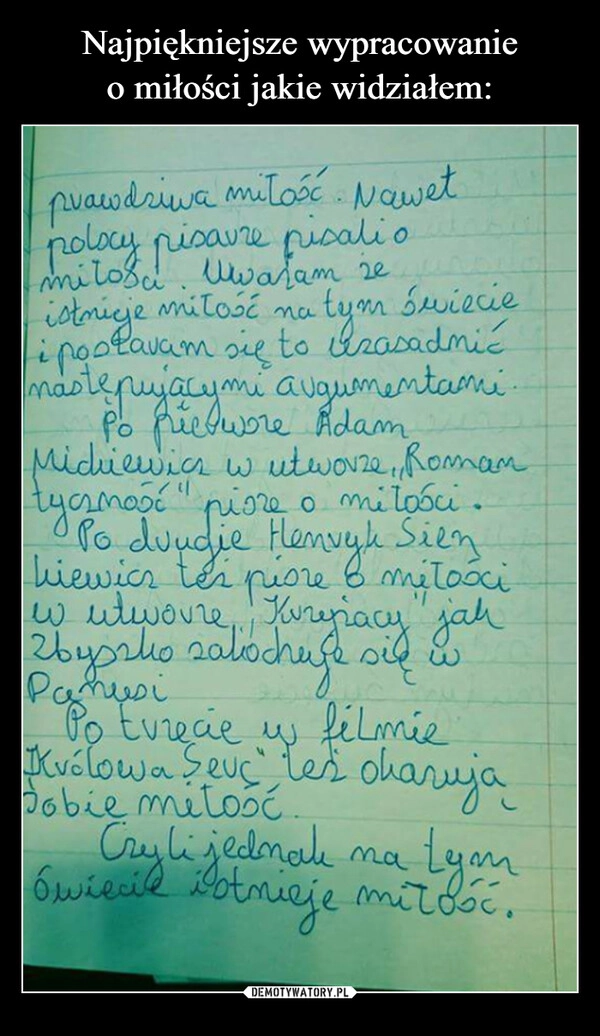 Najpiękniejsze wypracowanie
o miłości jakie widziałem:
prawdziwa miłość. Nawet
polscy pisarze pisali o
miłości. Uważam że
istnieje miłość na tym świecie
i postaram się to uzasadnić
następującymi argumentami.
Po pierwsze Adam
Mickiewicz w utworze „Roman
tyczność" pisze o miłości.
Po drugie Henryk Sien
kiewicz też pisze o miłości
w utworze „Krzyżacy" jak
Zbyszko zakochuje się w
Danusi
Po trzecie w filmie
Królowa Serc" też okazują
sobie miłość.
Czyli jednak na tym
świecie istnieje miłość.
DEMOTYWATORY.PL